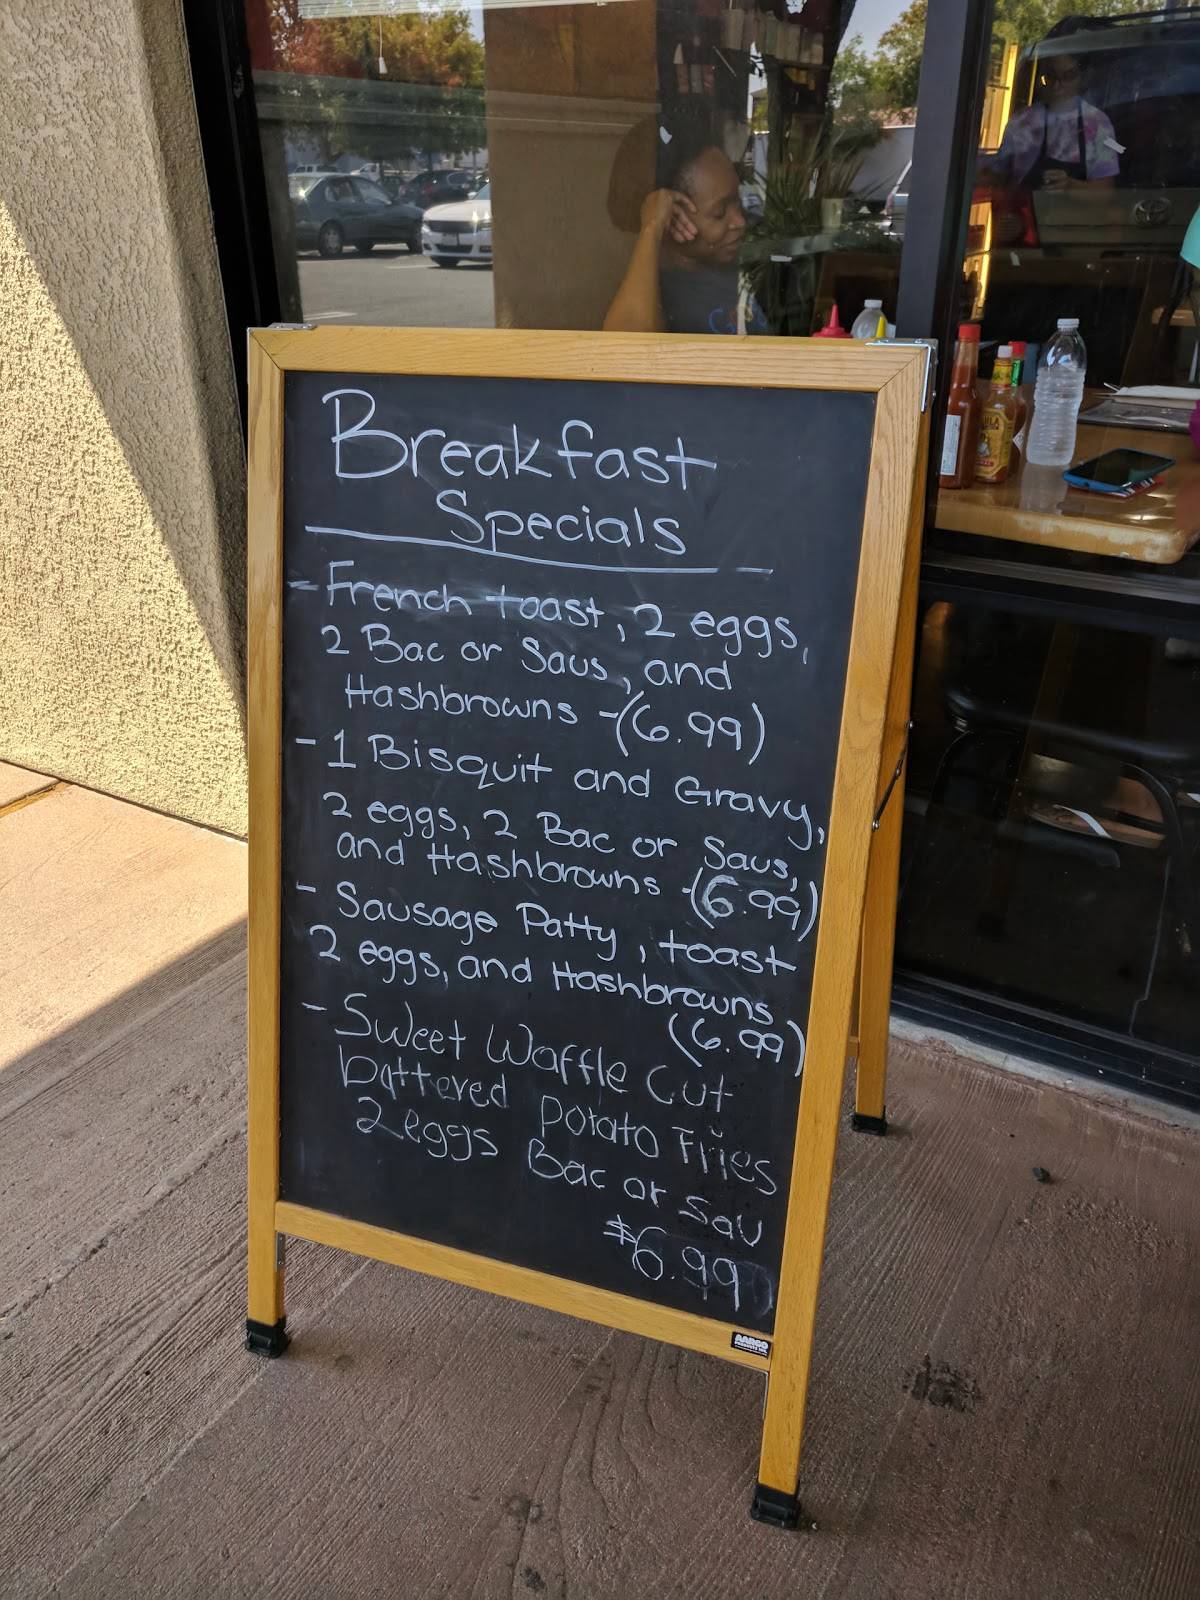 Breakfast
Specials
- French toast, 2 eggs,
2 Bac or Saus, and
Hashbrowns -(6.99)
- 1 Bisquit and Gravy,
2 eggs, 2 Bac or Saus,
and Hashbrowns -(6.99)
- Sausage Patty, toast
2 eggs, and Hashbrowns
(6.99)
- Sweet Waffle Cut
battered Potato Fries
2 eggs Bac or Sau
$6.99
AARCO